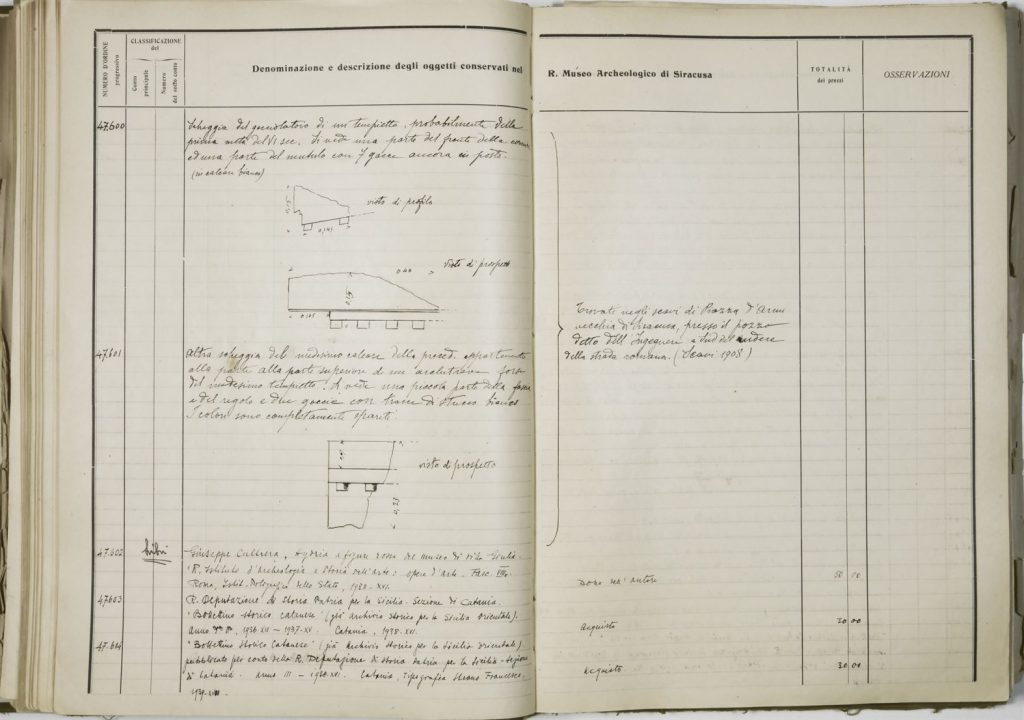 NUMERO D'ORDINE progressivo
CLASSIFICAZIONE del
Conto principale
Numero del sotto conto
Denominazione e descrizione degli oggetti conservati nel R. Museo Archeologico di Siracusa
TOTALITÀ dei prezzi
OSSERVAZIONI
47.600
Scheggia del gocciolatoio di un tempietto, probabilmente della
prima metà del VI sec. Si vede una parte del fronte della
ed una parte del mutulo con 7 gocce ancora in posto.
(in calcare bianco)
visto di profilo
0,145
visto di prospetto
0,40
0,15
0,105
Trovati negli scavi di Piazza d'Armi
vecchia di Siracusa, presso il pozzo
detto dell'Ingegnere a Sud del
della strada romana. (Scavi 1908)
47.601
Altra scheggia del medesimo calcare della preced. appartenente
alla parte alla parte superiore di un architrave forse
del medesimo tempietto. Si vede una piccola parte della fascia
e del regolo e due gocce con tracce di stucco bianco
I colori sono completamente spariti
visto di prospetto
0,23
47.602
libri
Giuseppe Cultrera, Hydria a figure rosse del museo di villa Giulia.
R. Istituto d'archeologia e storia dell'arte: opere d'arte. Fasc. VIII.
Roma, Istit. Poligrafico dello Stato, 1938-XVI.
Dono dell'autore
50 00
47.603
R. Deputazione di Storia Patria per la Sicilia. Sezione di Catania.
"Bollettino storico catanese" (già archivio storico per la Sicilia orientale).
Catania, 1938-XVI.
Acquisto
20 00
47.604
"Bollettino Storico Catanese" (già Archivio Storico per la Sicilia orientale)
pubblicato per conto della R. Deputazione di Storia Patria per la Sicilia - Sezione
di Catania. Anno III - 1938-XVI. Catania, Tipografia Strano Francesco,
Acquisto
30 00